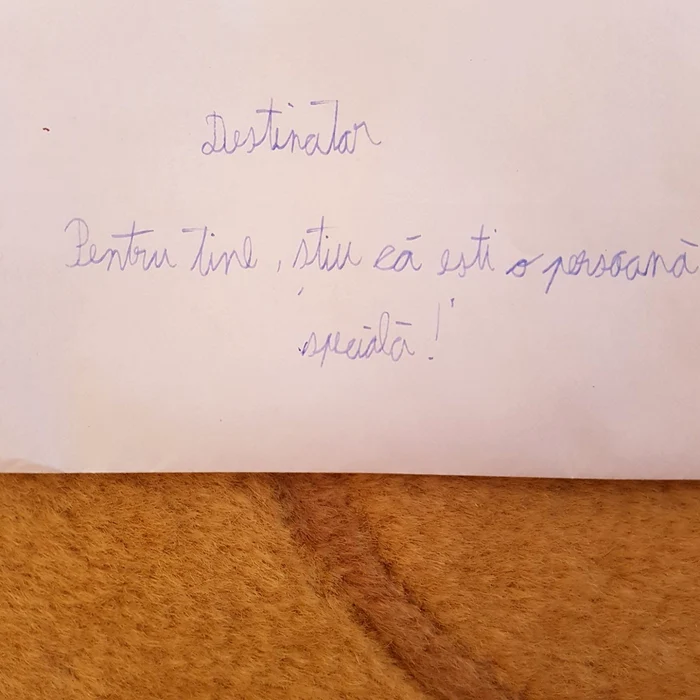 Destinatar
Pentru tine, știu că ești o persoană
specială!